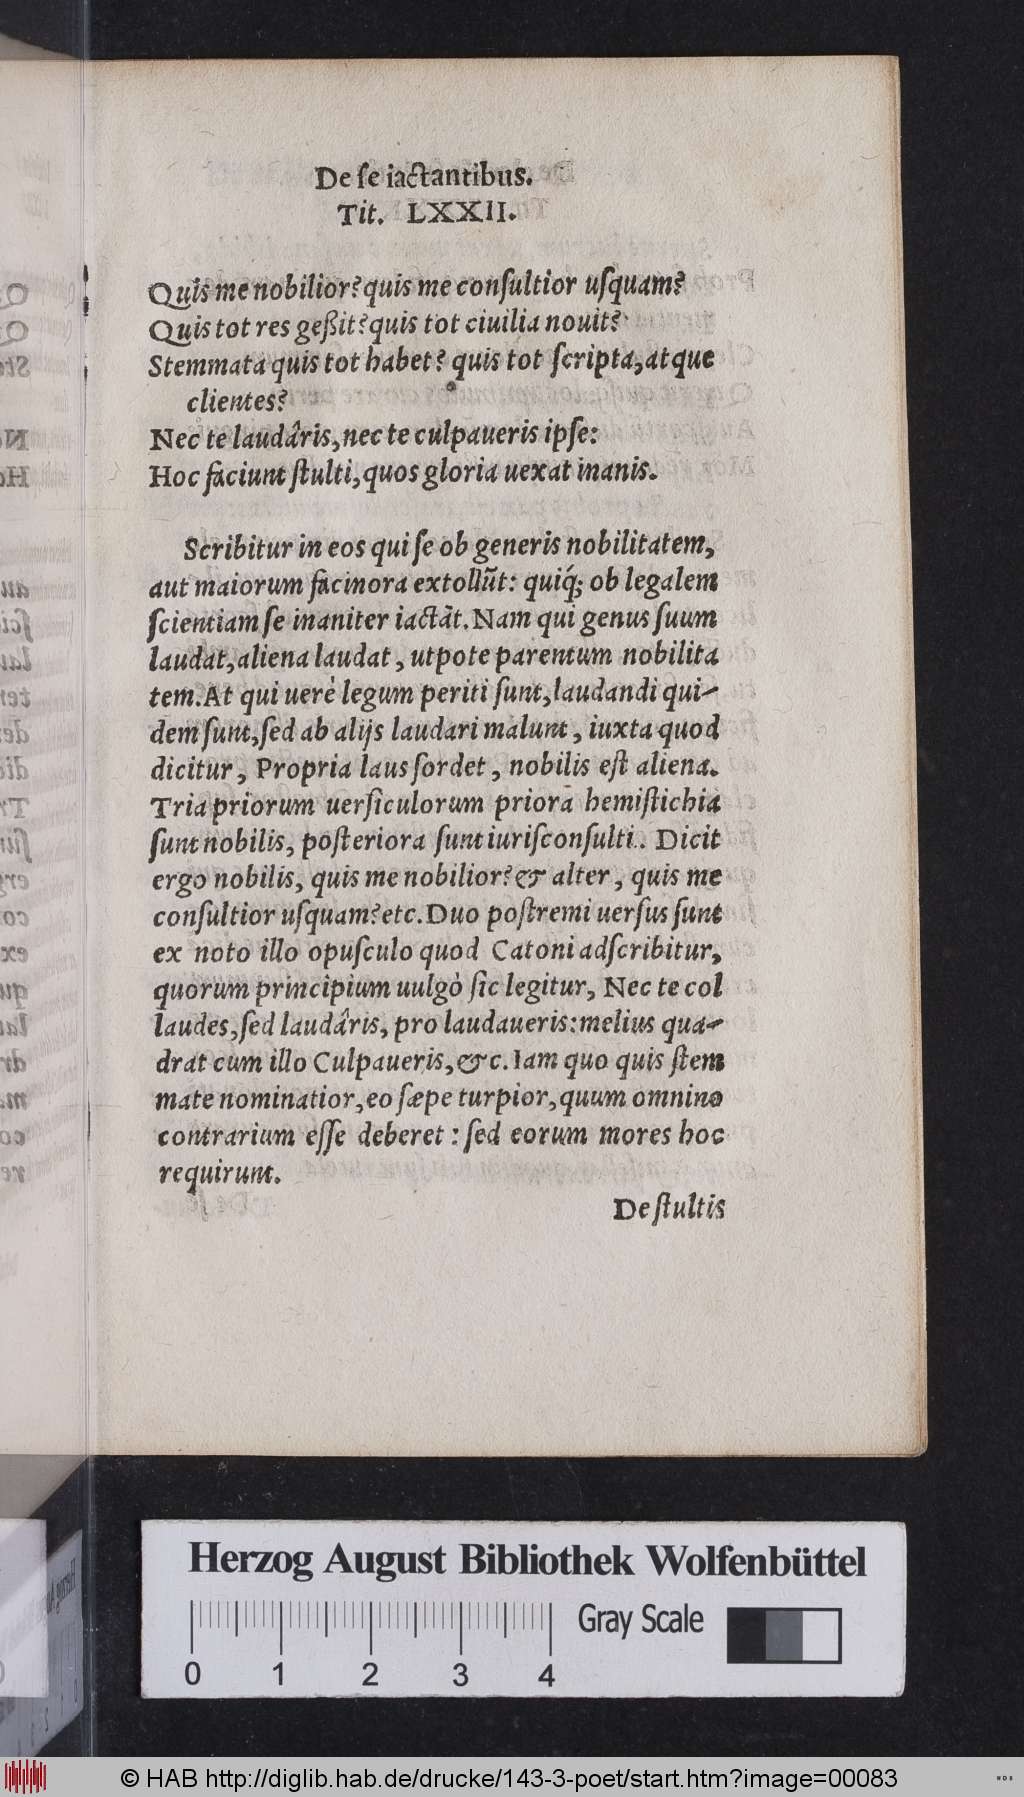 De ſe iactantibus.
Tit. LXXII.
Quis me nobilior? quis me conſultior uſquam?
Quis tot res geßit? quis tot ciuilia nouit?
Stemmata quis tot habet? quis tot ſcripta, atque
clientes?
Nec te laudâris, nec te culpaueris ipſe:
Hoc faciunt ſtulti, quos gloria uexat inanis.
Scribitur in eos qui ſe ob generis nobilitatem,
aut maiorum facinora extollūt: quiq́; ob legalem
ſcientiam ſe inaniter iactāt. Nam qui genus ſuum
laudat, aliena laudat, utpote parentum nobilita
tem. At qui uerè legum periti ſunt, laudandi qui-
dem ſunt, ſed ab alijs laudari malunt, iuxta quod
dicitur, Propria laus ſordet, nobilis eſt aliena.
Tria priorum uerſiculorum priora hemiſtichia
ſunt nobilis, poſteriora ſunt iuriſconſulti. Dicit
ergo nobilis, quis me nobilior? & alter, quis me
conſultior uſquam? etc. Duo poſtremi uerſus ſunt
ex noto illo opuſculo quod Catoni adſcribitur,
quorum principium uulgò ſic legitur, Nec te col
laudes, ſed laudâris, pro laudaueris: melius qua-
drat cum illo Culpaueris, &c. Iam quo quis ſtem
mate nominatior, eo ſæpe turpior, quum omnino
contrarium eſſe deberet: ſed eorum mores hoc
requirunt.
De ſtultis
Herzog August Bibliothek Wolfenbüttel
Gray Scale
0 1 2 3 4
© HAB http://diglib.hab.de/drucke/143-3-poet/start.htm?image=00083